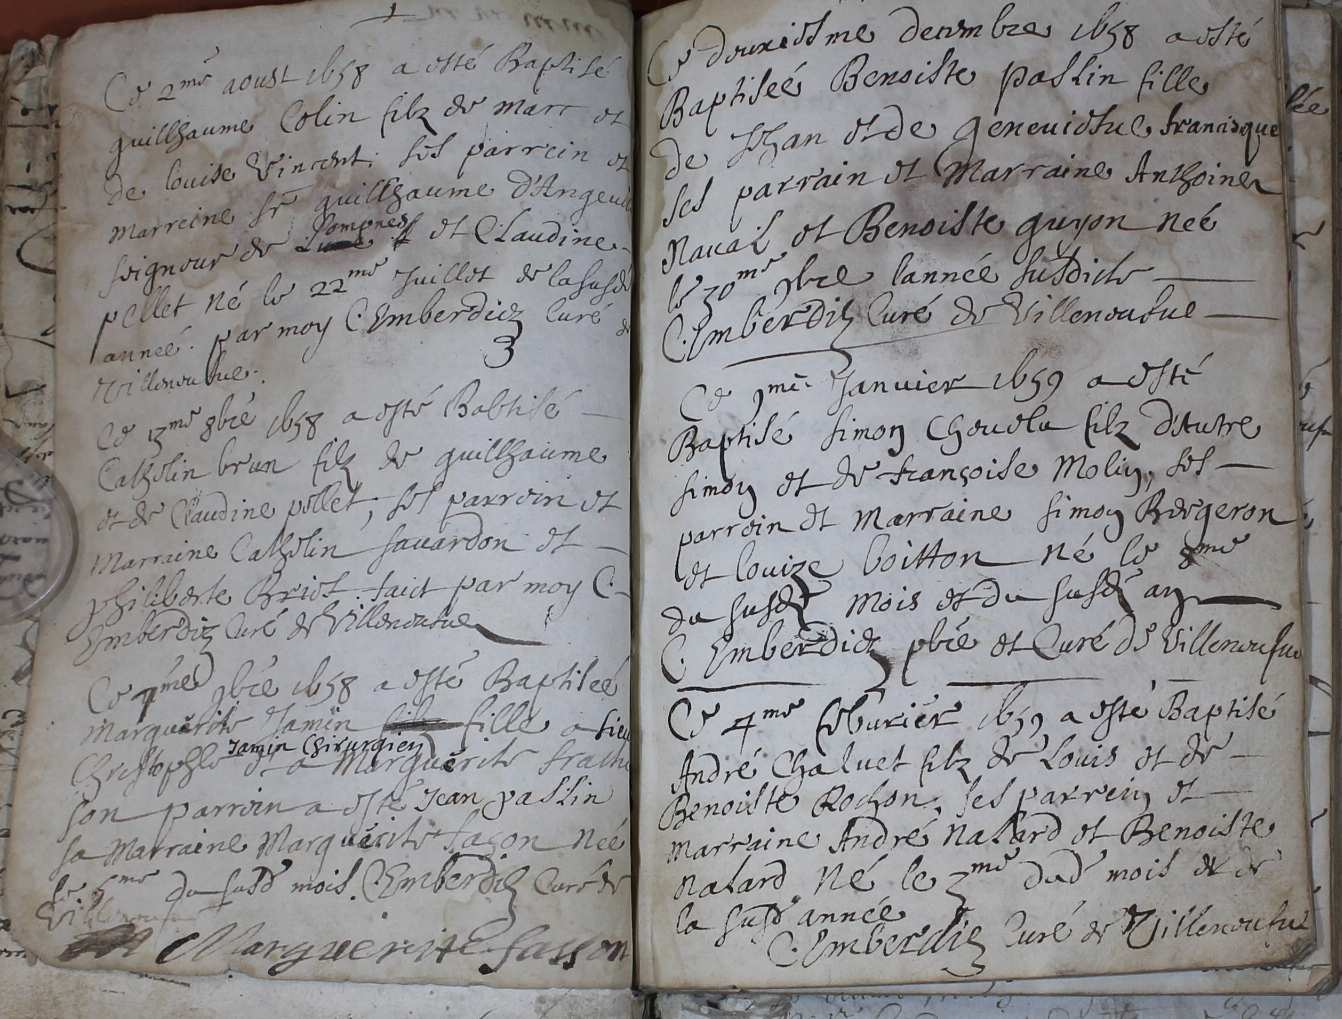 1
Ce 2me aoust 1658 a esté Baptisé
guillhaume Colin filz de marc et
de louise Vincent. ses parrein et
marreine sr guillhaume d'Angeuil
seigneur de Pomprez et Claudine
pellet né le 22me Juillet de la susde
année. par moy C. Emberdiez Curé de
Villeneufue.
Ce 13me 8bre 1658 a esté Babtisé
Catholin brun filz de guillhaume
et de Claudine pellet, ses parrein et
marraine Catholin sauardon et
philiberte Briot faict par moy C.
Emberdiz Curé de Villeneufue
Ce 7me 9bre 1658 a esté Baptiseé
Marguerite Jamin fille a sieu
Christophle Jamin Chirurgien et a Marguerite
son parrein a esté Jean paslin
sa Marraine Marguerite fason Née
le 5me du susd mois. C. Emberdiz Curé de
Villeneufue
Marguerite fasson
Ce deuxiesme decembre 1658 a esté
Baptiseé Benoiste paslin fille
de Jhan et de geneuiefue francisque
ses parrain et Marraine Anthoine
Nauai et Benoiste guyon neé
le 30me 9bre lanneé susdicte
C. Emberdiz Curé de Villeneufue
Ce 9me Janvier 1659 a esté
Baptisé simon Chouola filz d'Autre
simon et de françoise Molin, ses
parrein et Marraine simon Bergeron
et louize boitton né le 8me
du susde mois et du susde an
C. Emberdiez pbre et Curé de Villeneufue
Ce 4me feburier 1659 a esté Baptisé
André Chaluet filz de Louis et de
Benoiste Rochon, ses parrein et
marraine André Nalard et Benoiste
Nalard Né le 3me dud mois et de
la susd année
C. Emberdiz Curé de Villeneufue